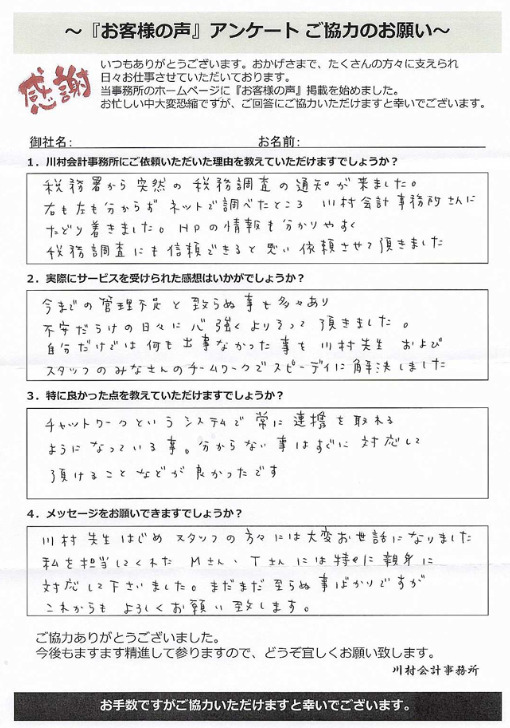 ～『お客様の声』アンケート ご協力のお願い～
感謝
いつもありがとうございます。おかげさまで、たくさんの方々に支えられ
日々お仕事させていただいております。
当事務所のホームページに『お客様の声』掲載を始めました。
お忙しい中大変恐縮ですが、ご回答にご協力いただけますと幸いでございます。
御社名： お名前：
1．川村会計事務所にご依頼いただいた理由を教えていただけますでしょうか？
税務署から突然の税務調査の通知が来ました。
右も左も分からず ネットで調べたところ 川村会計事務所さんに
たどり着きました。HPの情報も分かりやすく
税務調査にも信頼できると思い依頼させて頂きました
2．実際にサービスを受けられた感想はいかがでしょうか？
今までの管理不足と致らぬ事も多々あり
不安だらけの日々に心強くよりそって頂きました。
自分だけでは何も出事なかった事も 川村先生 および
スタッフのみなさんのチームワークでスピーディに解決しました
3．特に良かった点を教えていただけますでしょうか？
チャットワークというシステムで常に連携を取れる
ようになっている事。分からない事はすぐに対応して
頂けることなどが良かったです
4．メッセージをお願いできますでしょうか？
川村先生はじめ スタッフの方々には大変お世話になりました
私を担当してくれた Mさん、Tさんには特に親身に
対応して下さいました。まだまだ至らぬ事ばかりですが
これからも よろしくお願い致します。
ご協力ありがとうございました。
今後もますます精進して参りますので、どうぞ宜しくお願い致します。
川村会計事務所
お手数ですがご協力いただけますと幸いでございます。